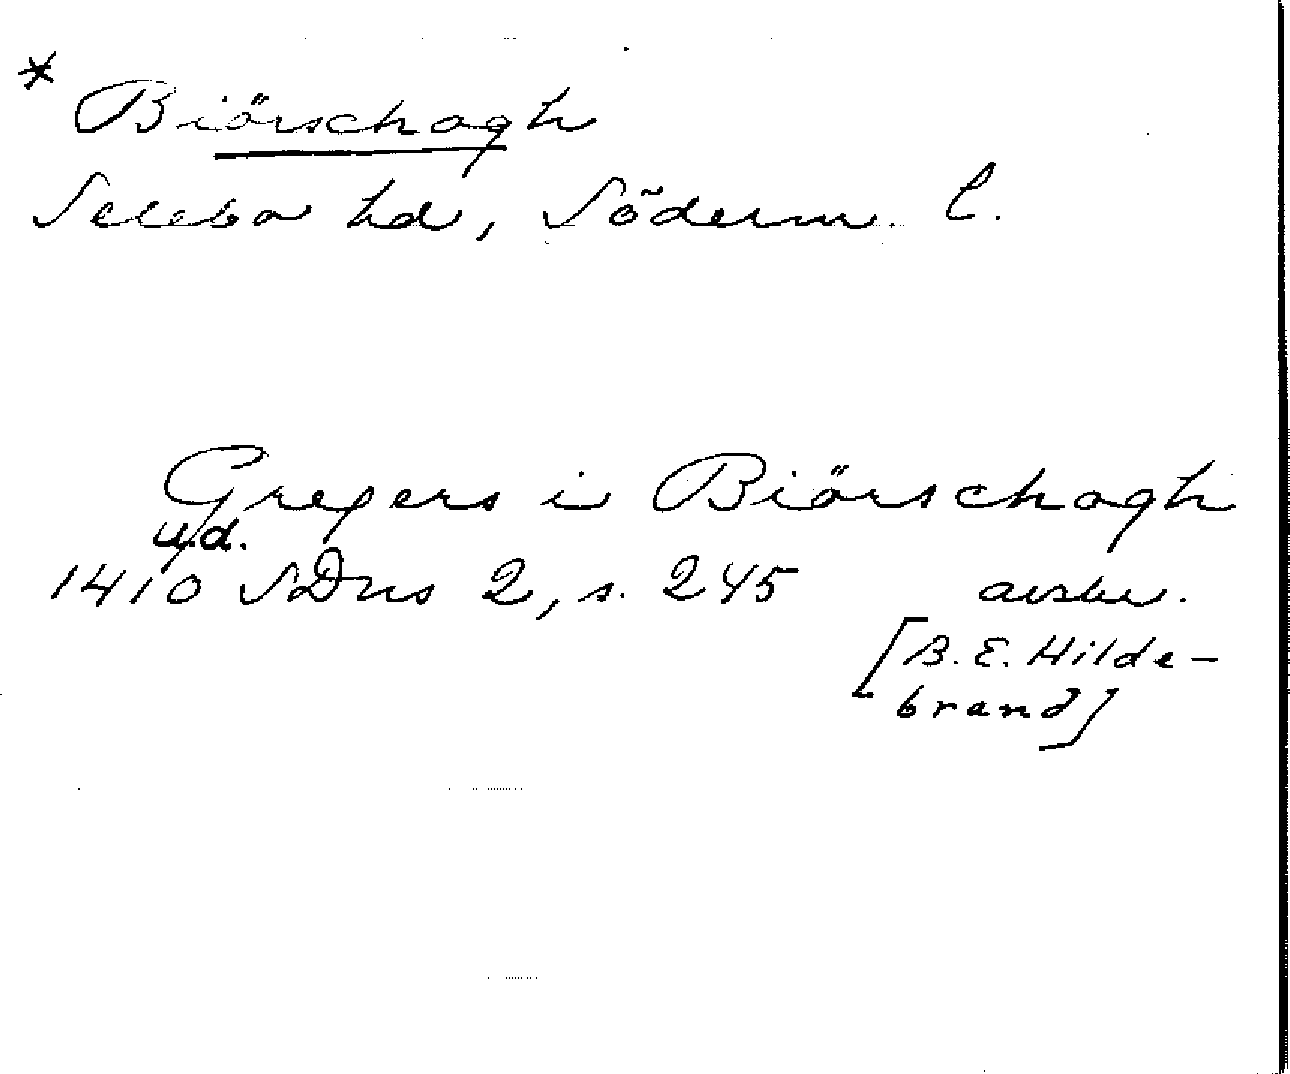 * Biörschogh
Selebo hd, Söderm. l.
Gregers i Biörschogh
u.d.
1410 SDns 2, s. 245 avskr.
[B. E. Hilde-
brand]